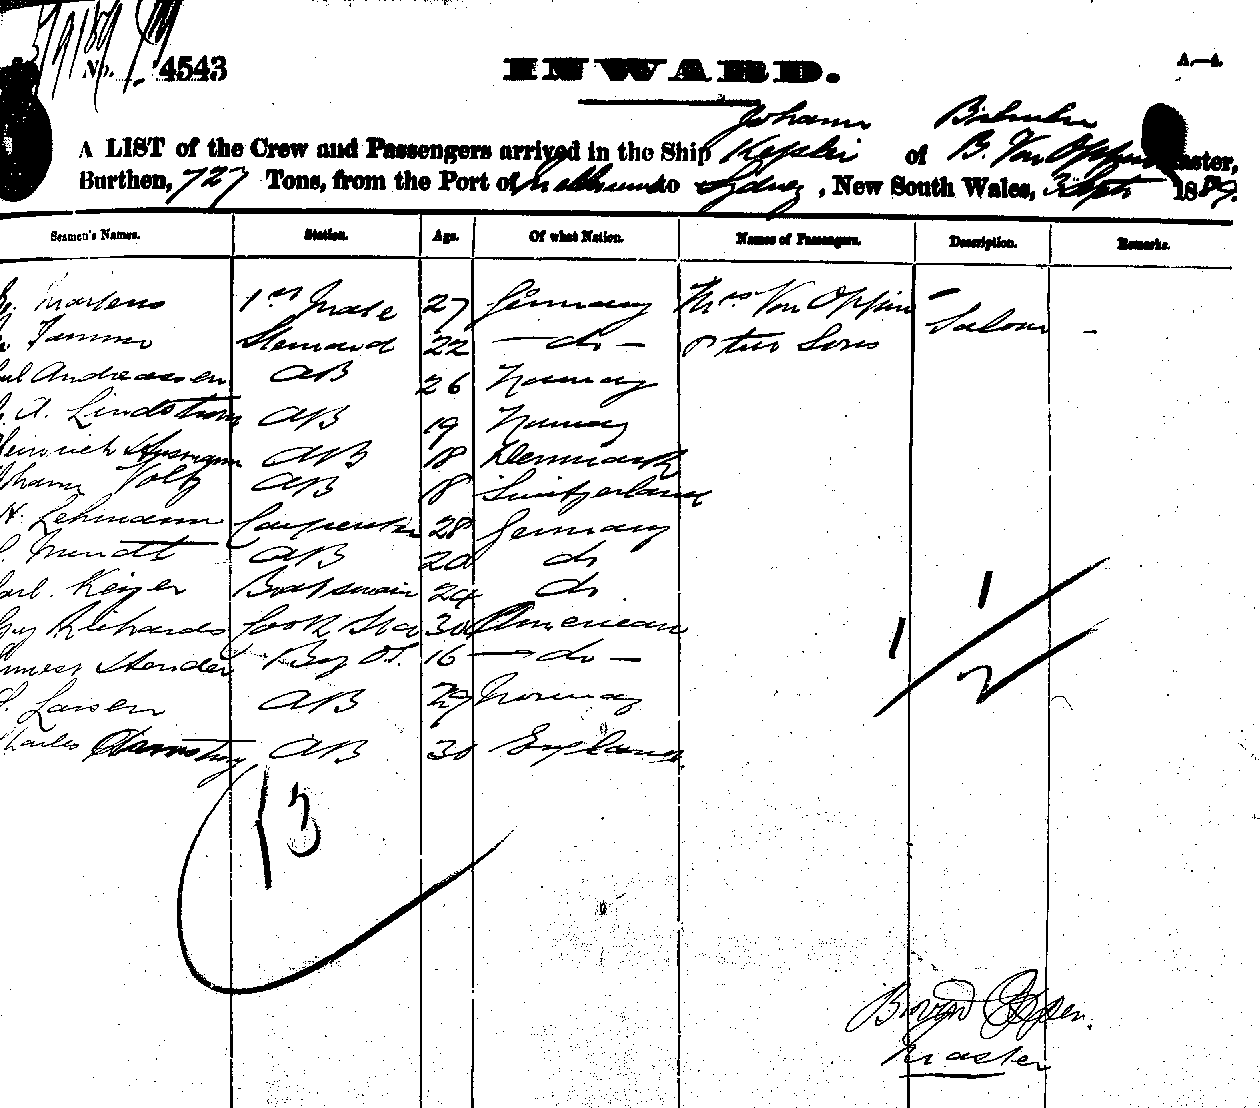 5/9/89
No. 4543
INWARD.
A.—A.
A LIST of the Crew and Passengers arrived in the Ship Johann Kepler of B. Von Oppen Master,
Burthen, 727 Tons, from the Port of Melbourne to Sydney, New South Wales, 3 Sept 1889.
Seamen's Names. Station. Age. Of what Nation. Names of Passengers. Description. Remarks.
Martens 1st Mate 27 Germany Mrs Von Oppen Saloon
Steward 22 do two Sons
Andreassen AB 26 Norway
A. Lindstrom AB 19 Norway
Heinrich AB 18 Denmark
Johann Voltz AB 18 Switzerland
H. Lehmann Carpenter 28 Germany
AB 20 do
Carl Keizer Boatswain 24 do
Richards Cook 30 American
Boy O.S. 16 do
Larsen AB 29 Norway
Charles Armstrong AB 30 England
13
1
1
2
Oppen
Master